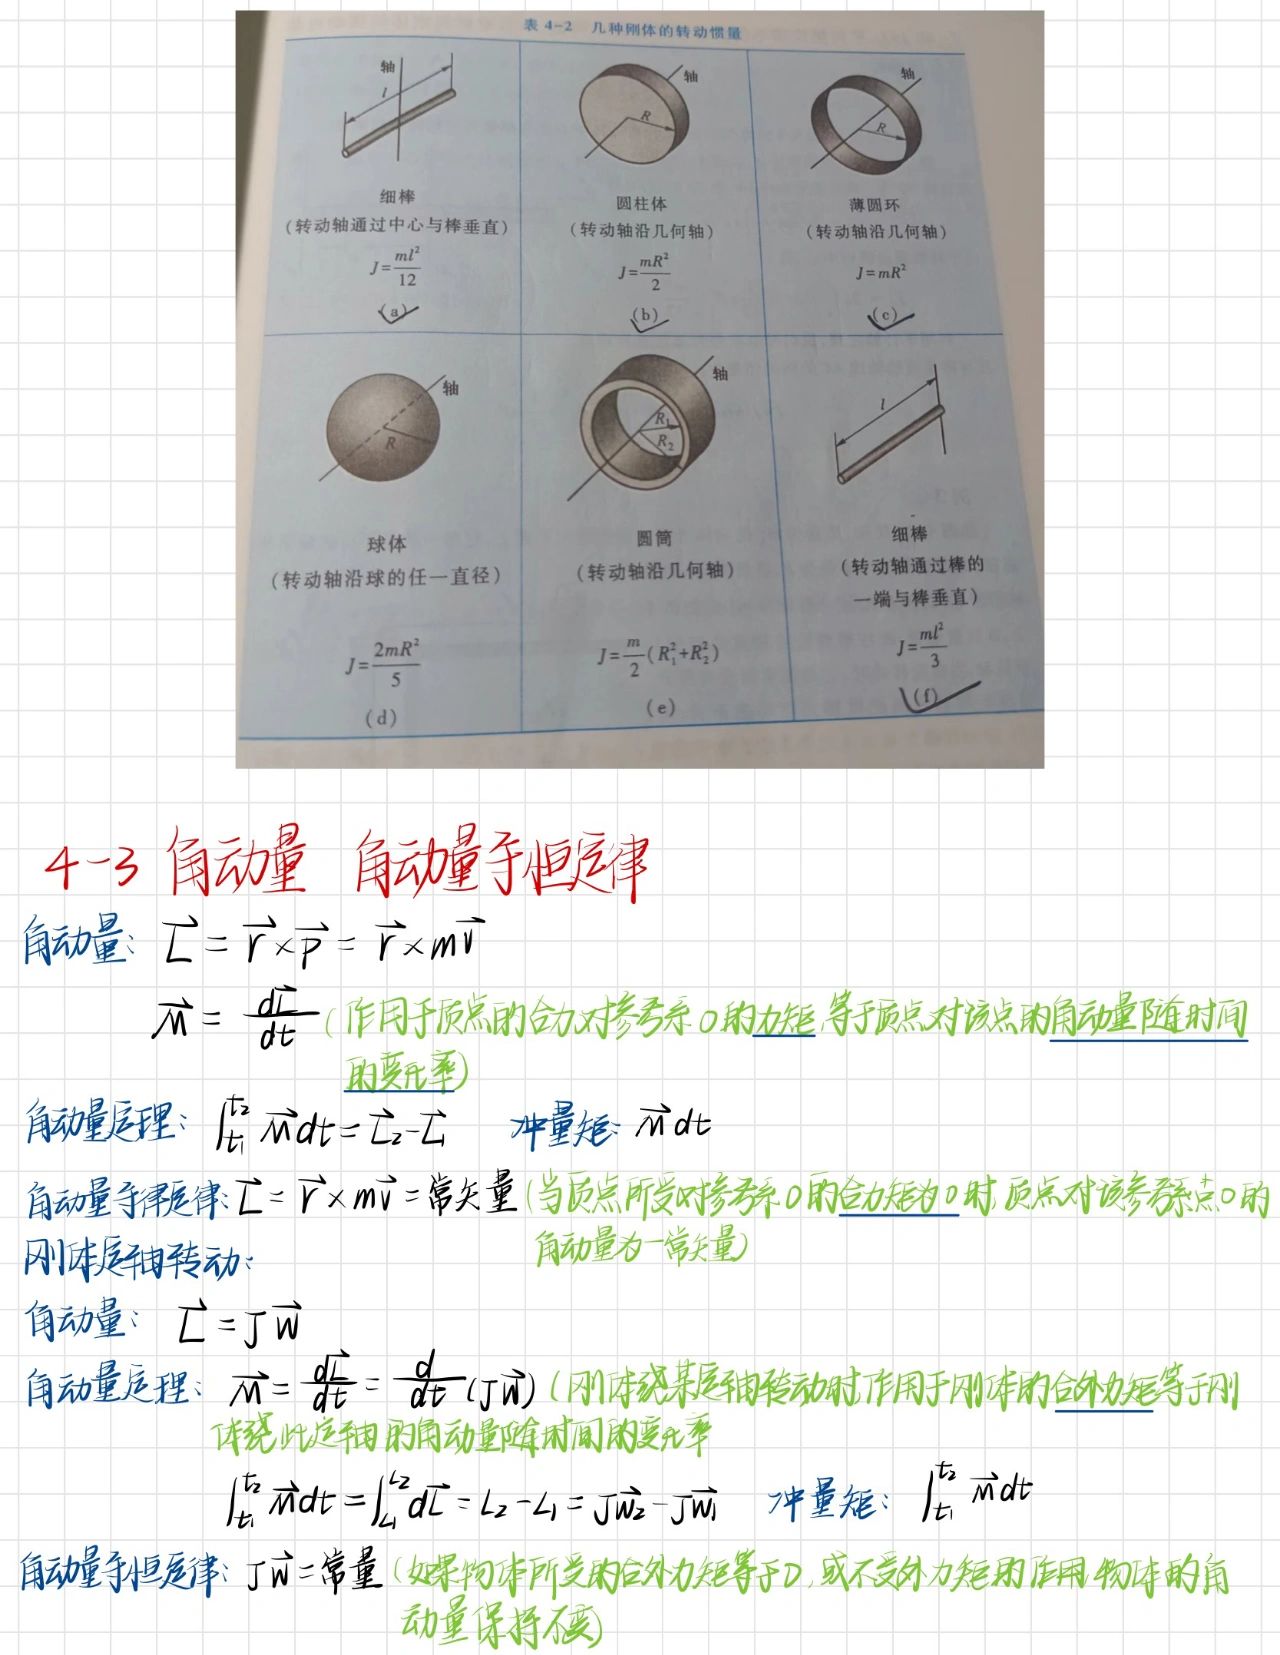 表 4-2 几种刚体的转动惯量
轴
l
细棒
(转动轴通过中心与棒垂直)
J=ml²/12
(a)
轴
R
圆柱体
(转动轴沿几何轴)
J=mR²/2
(b)
轴
R
薄圆环
(转动轴沿几何轴)
J=mR²
(c)
轴
R
球体
(转动轴沿球的任一直径)
J=2mR²/5
(d)
轴
R₁
R₂
圆筒
(转动轴沿几何轴)
J=m/2(R₁²+R₂²)
(e)
l
细棒
(转动轴通过棒的
一端与棒垂直)
J=ml²/3
(f)
4-3 角动量 角动量守恒定律
角动量: L⃗ = r⃗ × p⃗ = r⃗ × mv⃗
M⃗ = dL⃗/dt (作用于质点的合力对参考系O的力矩,等于质点对该点的角动量随时间
的变化率)
角动量定理: ∫_{t₁}^{t₂} M⃗dt = L⃗₂-L⃗₁ 冲量矩: M⃗dt
角动量守律定律: L⃗ = r⃗ × mv⃗ = 常矢量 (当质点所受对参考系O的合力矩为0时,质点对该参考系点O的
角动量为一常矢量)
刚体定轴转动:
角动量: L⃗ = Jw⃗
角动量定理: M⃗ = dL⃗/dt = d/dt (Jw⃗) (刚体绕某定轴转动时,作用于刚体的合外力矩等于刚
体绕此定轴的角动量随时间的变化率
∫_{t₁}^{t₂} M⃗dt = ∫_{L₁}^{L₂} dL⃗ = L₂-L₁ = Jw⃗₂-Jw⃗₁ 冲量矩: ∫_{t₁}^{t₂} M⃗dt
角动量守恒定律: Jw⃗ = 常量 (如果物体所受的合外力矩等于0,或不受外力矩的作用,物体的角
动量保持不变)